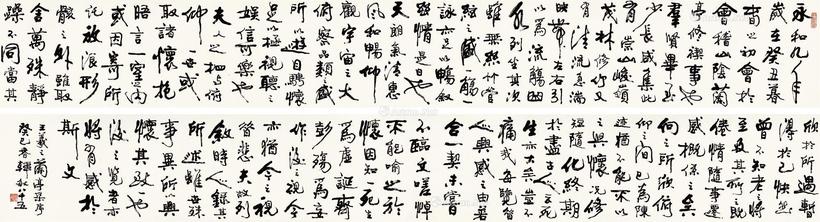 永和九年
歲在癸丑暮
春之初會於
會稽山陰蘭
亭脩禊事也
羣賢畢至
少長咸集此
有崇山峻嶺
茂林修竹又
有清流激湍
映帶左右引
以為流觴曲
水列坐其次
雖無絲竹管
絃之盛一觴一
詠亦足以暢敘
幽情是日也
天朗氣清惠
風和暢仰
觀宇宙之大
俯察品類盛
所以遊目騁懷
足以極視聽之
娛信可樂也
夫人之相與俯
仰一世或
取諸懷抱
晤言一室之內
或因寄所
託放浪形
骸之外雖取
舍萬殊靜
躁不同當其
欣於所遇暫
得於己快然
曾不知老之將
至及其所之既
倦情隨事遷
感慨係之矣
向之所欣俛
仰之間已為陳
迹猶不能不以
之興懷況修
短隨化終期
於盡古人云死
生亦大矣豈不
痛哉每覽昔
人興感之由若
合一契未嘗
不臨文嗟悼
不能喻之於
懷固知一死生
為虛誕齊
彭殤為妄
作後之視今
亦猶今之視
昔悲夫故列
敘時人錄其
所述雖世殊
事異所以興
懷其致一也
後之覽者亦
將有感於
斯文
王羲之蘭亭集序
癸巳春